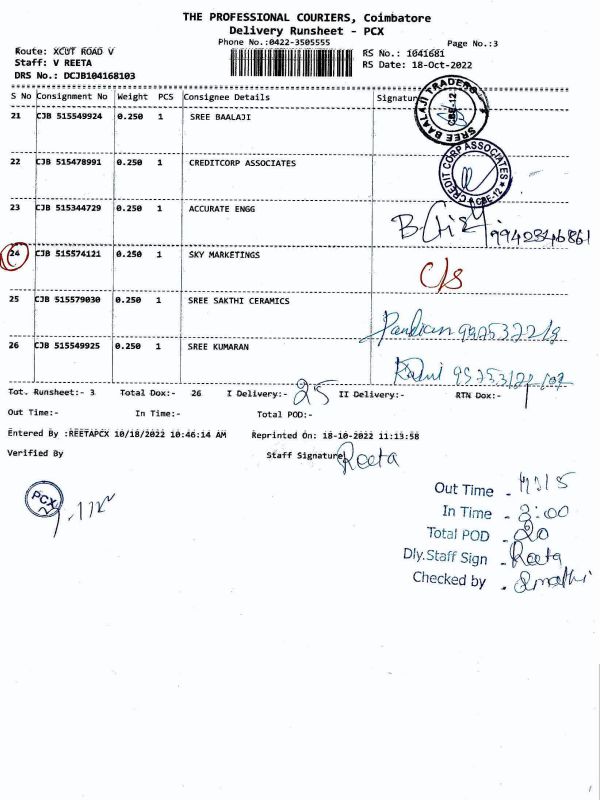 THE PROFESSIONAL COURIERS, Coimbatore
Delivery Runsheet - PCX
Phone No.:0422-3505555
Page No.:3
Route: XCUT ROAD V
RS No.: 1041681
Staff: V REETA
RS Date: 18-Oct-2022
DRS No.: DCJB104168103
S No Consignment No Weight PCS Consignee Details Signature
21 CJB 515549924 0.250 1 SREE BAALAJI
SREE BAALAJI TRADERS CBE-12
22 CJB 515478991 0.250 1 CREDITCORP ASSOCIATES
CREDIT CORP ASSOCIATES CBE-12
23 CJB 515344729 0.250 1 ACCURATE ENGG
9942346861
24 CJB 515574121 0.250 1 SKY MARKETINGS
C/s
25 CJB 515579030 0.250 1 SREE SAKTHI CERAMICS
Pandian
26 CJB 515549925 0.250 1 SREE KUMARAN
Tot. Runsheet:- 3 Total Dox:- 26 I Delivery:- 25 II Delivery:- RTN Dox:- 1
Out Time:- In Time:- Total POD:-
Entered By :REETAPCX 10/18/2022 10:46:14 AM Reprinted On: 18-10-2022 11:13:58
Verified By Staff Signature Reeta
PCX
Out Time -
In Time - 3:00
Total POD - 20
Dly.Staff Sign - Reeta
Checked by -